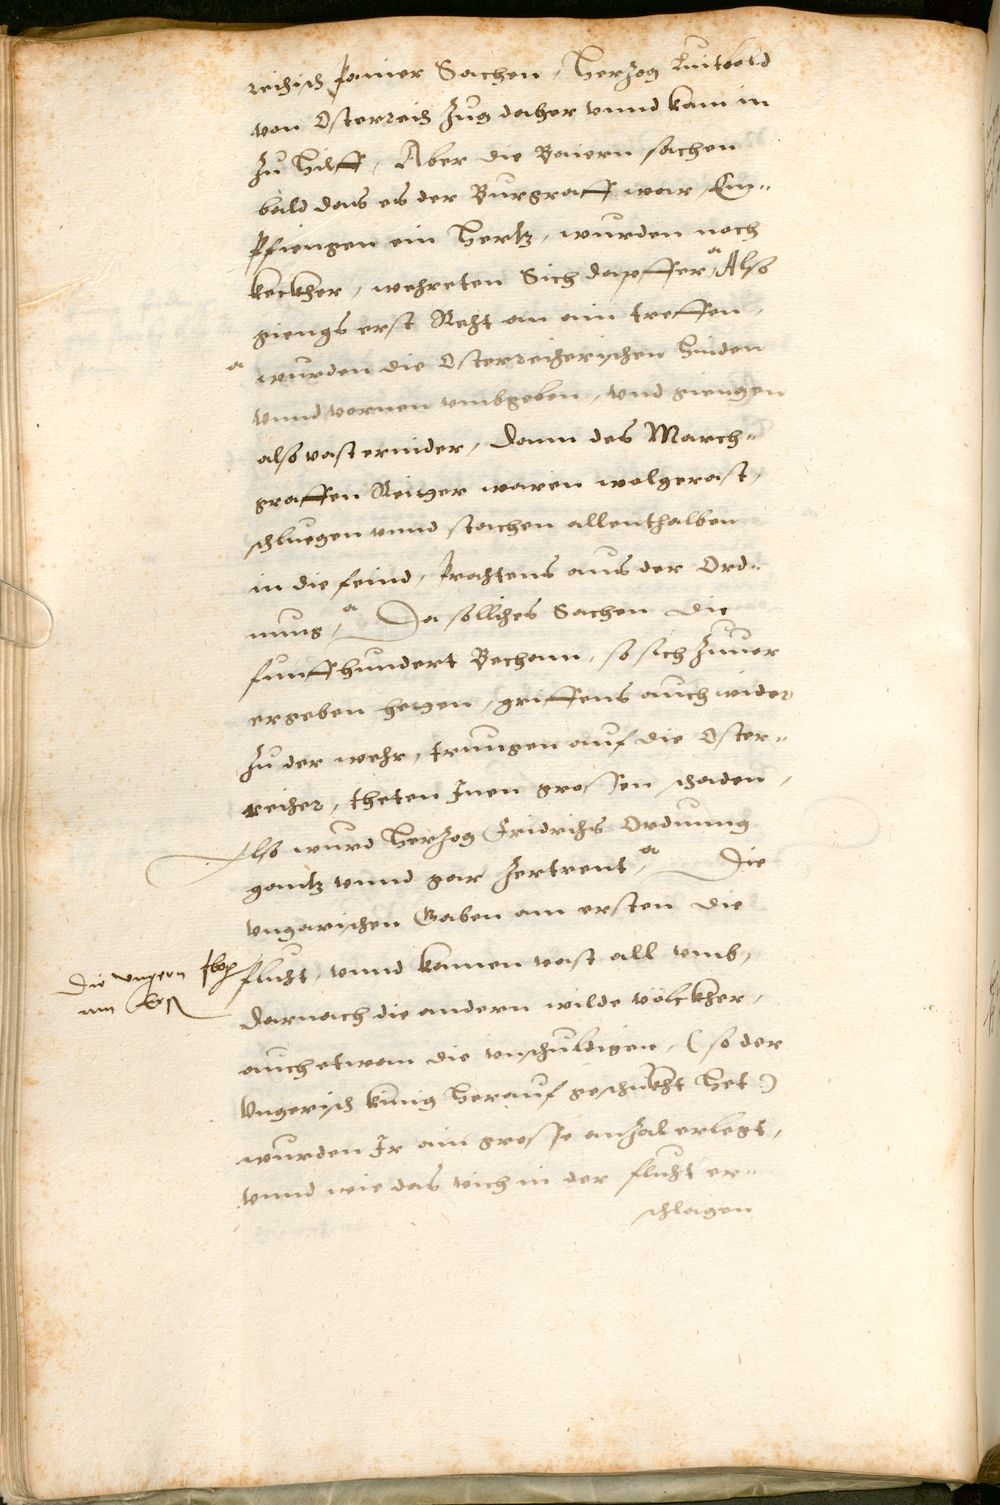 reichisch panier Sachen, Herzog Luitbold
von Osterreich Zug daher vnnd kam in
Zu Hilff, Aber die Baiern sachen
bald das es der Burgraff war, Em=
pfiengen ein Hertz, wurden noch
keckher, wehreten Sich dapffer, Also
giengs erst Recht an ain treffen,
wurden die Osterreicherischen Hinden
vnnd vornen vmbgeben, vnd giengen
also vast ernider, dann des March=
graffen Reitger waren wolgerast,
schluegen vnnd stachen allenthalben
in die feind, prachtens aus der Ord=
nung, Da solliches Sachen die
funffhundert Becham, so sich Zuuor
ergeben hetgen, griffens auch wider
Zu der wehr, trungen auf die Oster=
reicher, theten Inen grossen schaden,
Also wurd Herzog Fridrichs Ordnung
gantz vnnd gar Zertrent, Die
vngarischen Gaben am ersten die
flucht, vnnd kamen vast all vmb,
Die vngern
am
darnach die andern wilde völckher,
auch etwan die vnschuldigen, (so der
Vngerisch künig Herauf geschickht Het)
wurden Ir ain grosse anzal erlegt,
vnnd wie das vich in der flucht er=
schlagen